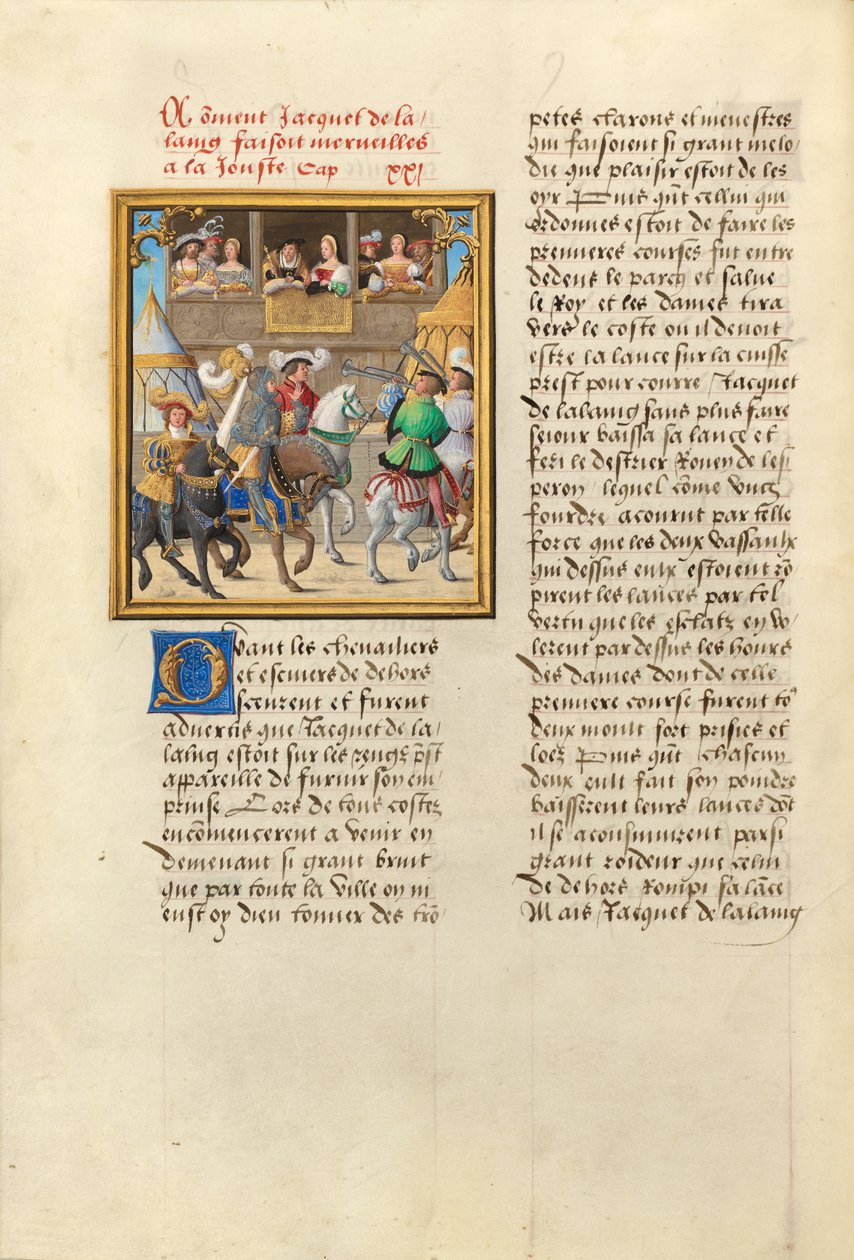 Cõment Jacquet de la/
laing faisoit merveilles
a la Jouste Cap xxj
Qvant les chevailiers
et escuiers de dehors
sceurent et furent
advertis que Jacquet de la/
laing estoit sur les rengz pr̃st
appareille de furnir son em/
prinse Lors de tous costez
encõmencerent a venir en
demenant si grant bruit
que par toute la ville on ni
eust oy dieu tonner des trõ/
petes clarons et menestres
qui faisoient si grant melo/
die que plaisir estoit de les
oyr Puis qũt cellui qui
ordonnes estoit de faire les
premieres courses fut entre
dedens le parcq et salue
le Roy et les dames tira
vers le coste ou il devoit
estre la lance sur la cuisse
prest pour courre / Jacquet
de lalaing sans plus faire
seiour baissa sa lance et
feri le destrier Roien de lesʃ
peron / lequel cõme ung
fourdre acourut par telle
force que les deux vassaulx
qui dessus eulx estoient rõ
pirent les lances par tel
vertu que les esclatz en vo/
lerent par dessus les hours
des dames dont de celle
premiere course furent to⁹
deux moult fort prisies et
loez Puis qũt chascun
deux eult fait son poindre
baisserent leurs lances dõt
il se aconsuiuirent par si
grant roideur que celui
de dehors Rompi sa lãce
Mais / Jacquet de lalaing